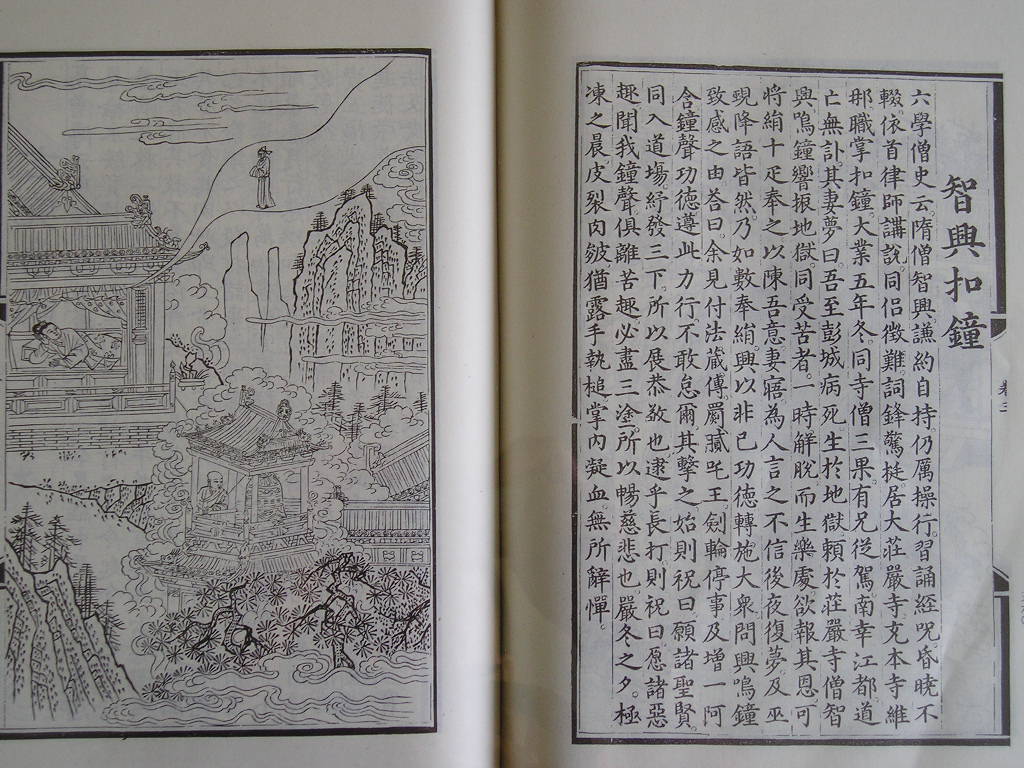 智興扣鐘
六學僧史云。隋僧智興。謙約自持。仍厲操行。習誦經呪。昏曉不
輟。依首律師講說。同侶徵難。詞鋒驚挺。居大莊嚴寺。充本寺維
那。職掌扣鐘。大業五年冬。同寺僧三果。有兄從駕南幸江都。道
亡無訃。其妻夢曰。吾至彭城病死。生於地獄。賴於莊嚴寺僧智
興鳴鐘。響振地獄。同受苦者。一時解脫。而生樂處。欲報其恩。可
將絹十疋奉之。以陳吾意。妻寤。為人言之。不信。後夜復夢。及巫
覡降語皆然。乃如數奉絹。興以非己功德。轉施大衆。問興鳴鐘
致感之由。答曰。余見付法藏傳。罽膩吒王。劍輪停事。及增一阿
含鐘聲功德。遵此力行。不敢怠爾。其擊之始。則祝曰。願諸聖賢。
同入道場。紓發三下。所以展恭敬也。逮乎長打。則祝曰。愿諸惡
趣。聞我鐘聲。俱離苦趣。必盡三塗。所以暢慈悲也。嚴冬之夕。極
凍之晨。皮裂肉皴。猶露手執槌。掌內凝血。無所辭憚。
卷三